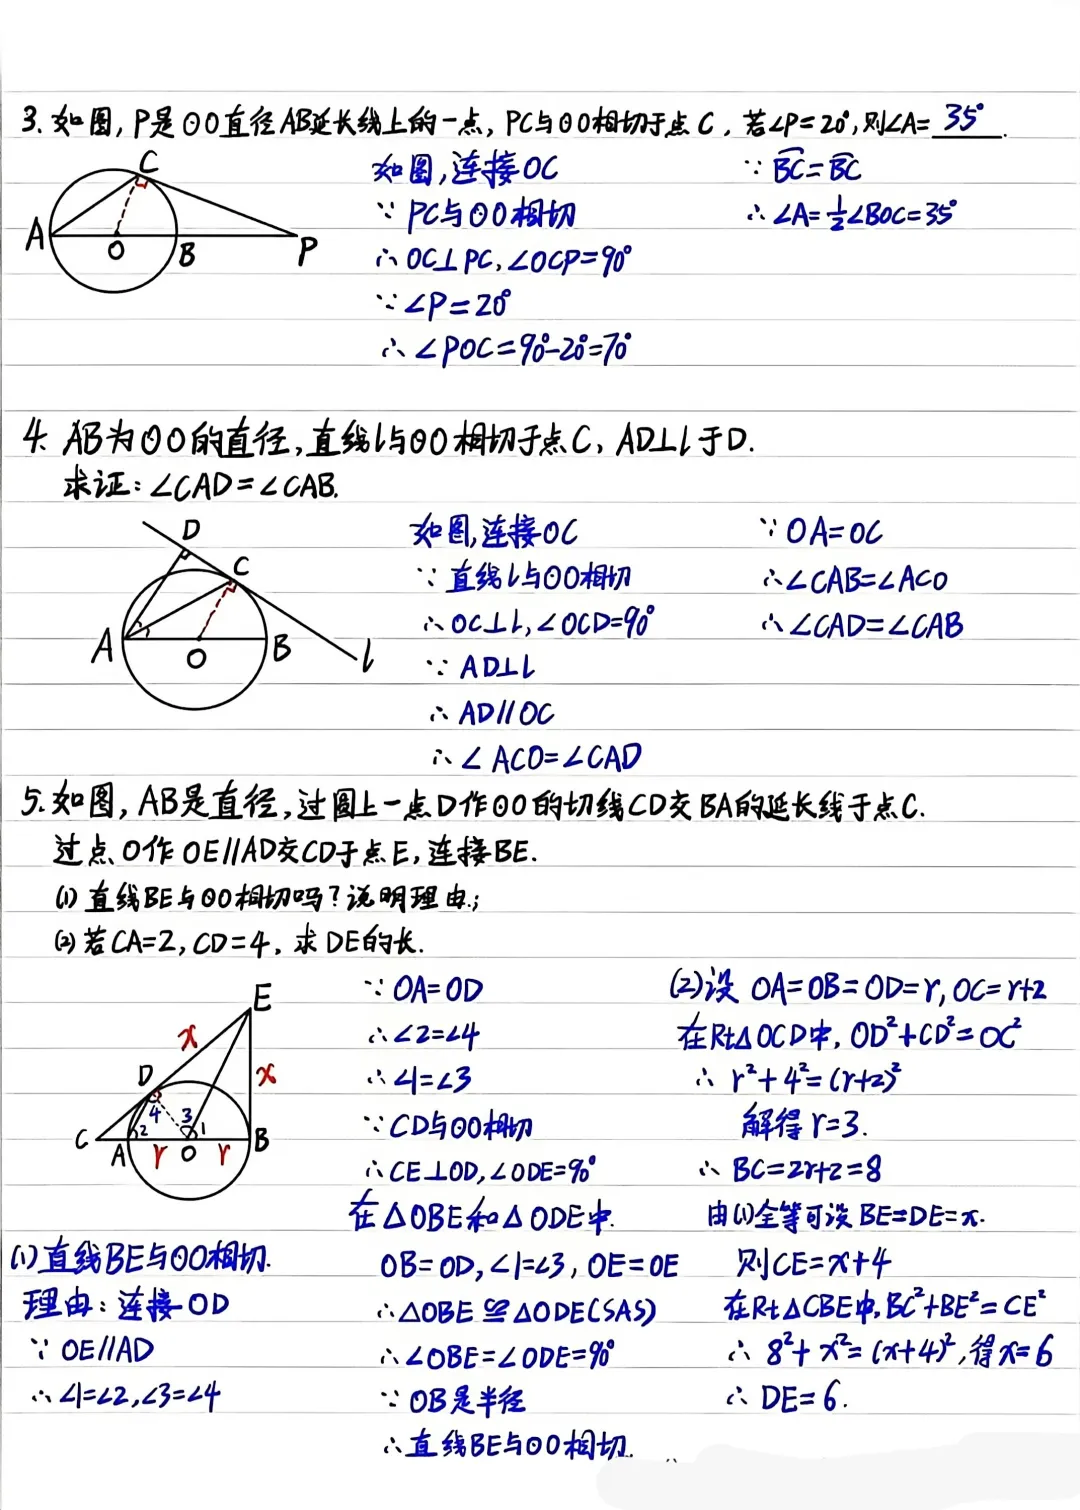 3. 如图, P是⊙O直径AB延长线上的一点, PC与⊙O相切于点C, 若∠P=20°, 则∠A= 35°.
C
A
O
B
P
如图,连接OC
∵ PC与⊙O相切
∴ OC⊥PC, ∠OCP=90°
∵ ∠P=20°
∴ ∠POC=90°-20°=70°
∵ BC=BC
∴ ∠A=½∠BOC=35°
4. AB为⊙O的直径, 直线l与⊙O相切于点C, AD⊥l于D.
求证: ∠CAD=∠CAB.
D
C
A
O
B
l
如图,连接OC
∵ 直线l与⊙O相切
∴ OC⊥l, ∠OCD=90°
∵ AD⊥l
∴ AD∥OC
∴ ∠ACO=∠CAD
∵ OA=OC
∴ ∠CAB=∠ACO
∴ ∠CAD=∠CAB
5. 如图, AB是直径, 过圆上一点D作⊙O的切线CD交BA的延长线于点C.
过点O作OE∥AD交CD于点E, 连接BE.
(1) 直线BE与⊙O相切吗? 说明理由.;
(2) 若CA=2, CD=4, 求DE的长.
E
x
D
x
4
3
C
2
1
B
A
r
O
r
(1) 直线BE与⊙O相切.
理由: 连接OD
∵ OE∥AD
∴ ∠1=∠2, ∠3=∠4
∵ OA=OD
∴ ∠2=∠4
∴ ∠1=∠3
∵ CD与⊙O相切
∴ CE⊥OD, ∠ODE=90°
在△OBE和△ODE中.
OB=OD, ∠1=∠3, OE=OE
∴ △OBE≌△ODE(SAS)
∴ ∠OBE=∠ODE=90°
∵ OB是半径
∴ 直线BE与⊙O相切.
(2) 设 OA=OB=OD=r, OC=r+2
在Rt△OCD中, OD²+CD²=OC²
∴ r²+4²=(r+2)²
解得 r=3.
∴ BC=2r+2=8
由(1)全等可设 BE=DE=x.
则CE=x+4
在Rt△CBE中, BC²+BE²=CE²
∴ 8²+x²=(x+4)², 得x=6
∴ DE=6.